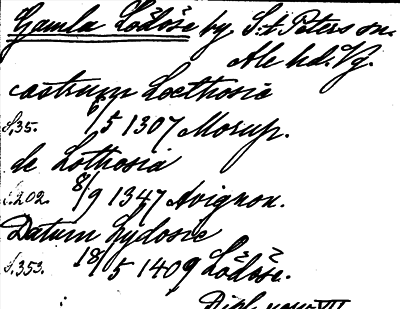 Gamla Lödöse by, S:t Peters sn.
Ale hd. Vg.
castrum Loethosie
S. 35. 6/5 1307 Morup.
de Lothosia
S. 202. 8/9 1347 Avignon.
Datum Lydosie
S. 353. 18/5 1409 Lödöse.
Dipl. VII